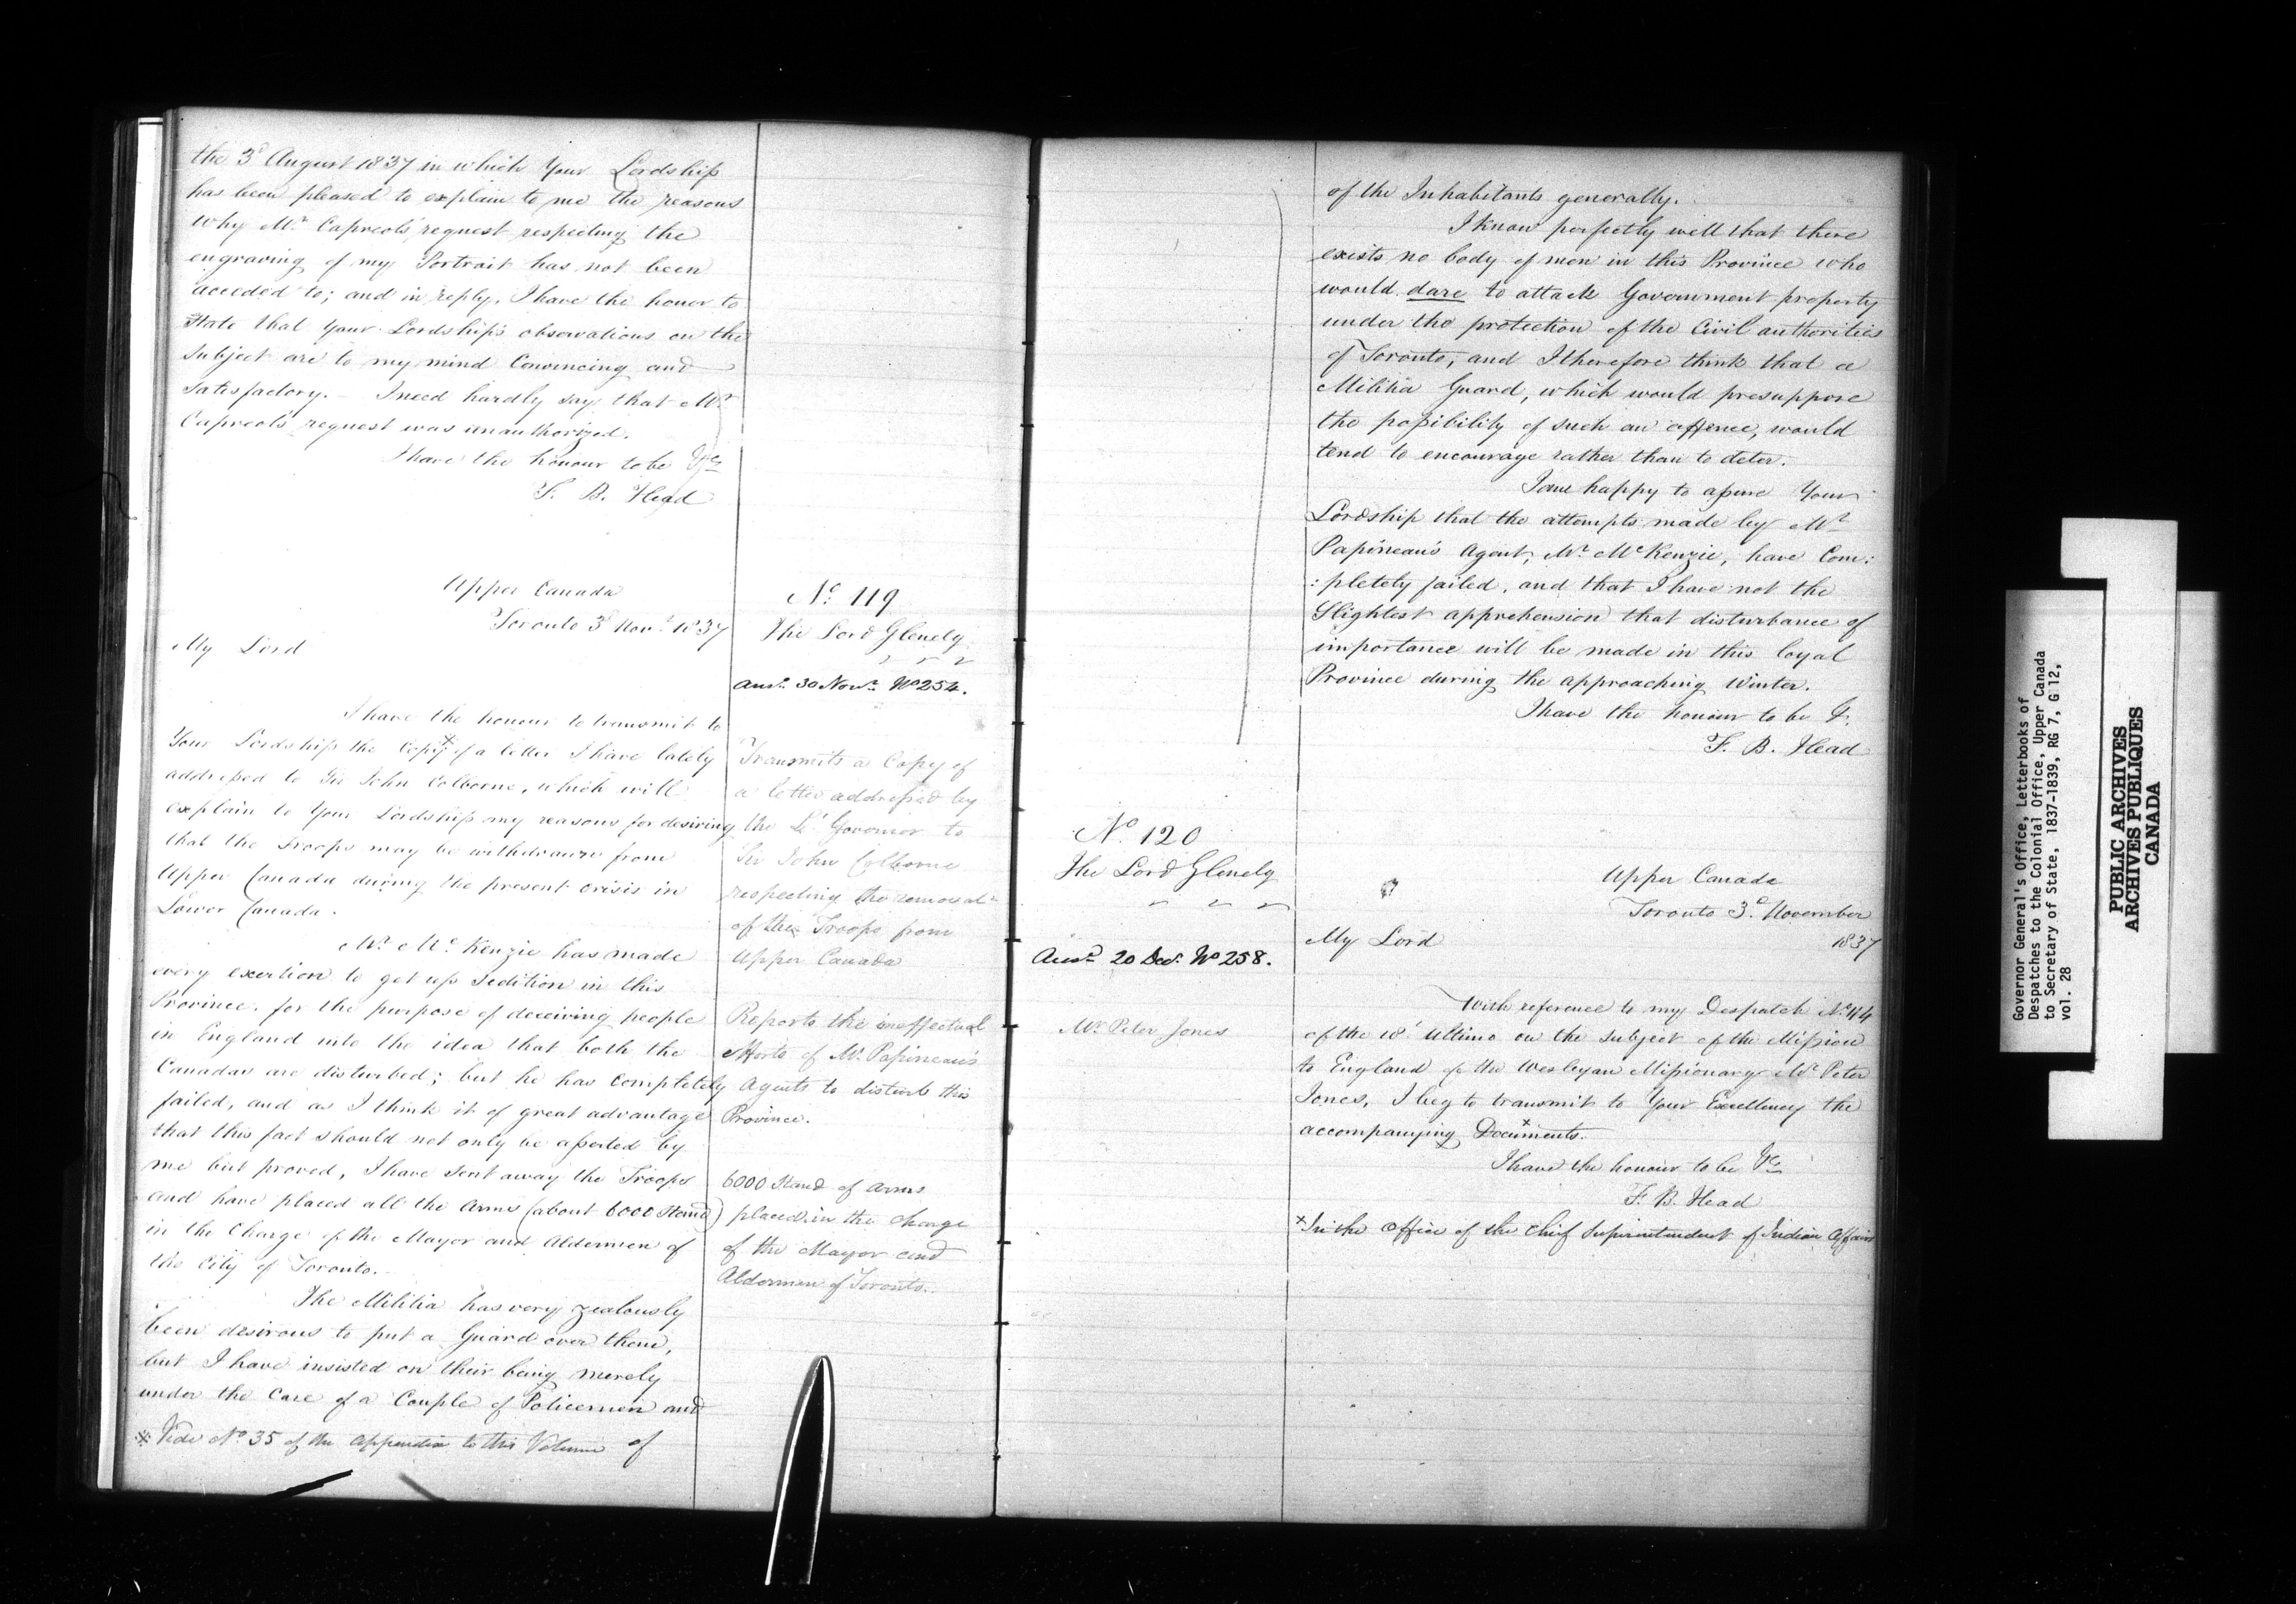 the 3d August 1837 in which Your Lordship
has been pleased to explain to me the reasons
why Mr. Capreol's request respecting the
engraving of my Portrait has not been
acceded to; and in reply, I have the honor to
State that Your Lordship's observations on the
subject are to my mind Convincing and
satisfactory. — I need hardly say that Mr.
Capreol's request was unauthorized.
I have the honour to be &c
F. B. Head
Upper Canada
Toronto 3d Novr. 1837
My Lord
I have the honour to transmit to
Your Lordship the Copy* of a letter I have lately
addressed to Sir John Colborne, which will
explain to Your Lordship my reasons for desiring
that the Troops may be withdrawn from
Upper Canada during the present crisis in
Lower Canada.
Mr. McKenzie has made
every exertion to get up Sedition in this
Province, for the purpose of deceiving people
in England into the idea that both the
Canadas are disturbed; but he has completely
failed, and as I think it of great advantage
that this fact should not only be asserted by
me but proved, I have sent away the Troops
and have placed all the Arms (about 6000 Stand)
in the Charge of the Mayor and Aldermen of
the City of Toronto.
The Militia has very zealously
been desirous to put a Guard over them,
but I have insisted on their being merely
under the Care of a Couple of Policemen and
* Vide No. 35 of the Appendix to this Volume of
No. 119
The Lord Glenelg
Ansd. 30 Novr. No 254.
Transmits a Copy of
a letter addressed by
the Lt. Governor to
Sir John Colborne
respecting the removal
of the Troops from
Upper Canada
Reports the ineffectual
efforts of Mr. Papineau's
Agents to disturb this
Province.
6000 Stand of Arms
placed in the charge
of the Mayor and
Aldermen of Toronto.
of the Inhabitants generally.
I know perfectly well that there
exists no body of men in this Province who
would dare to attack Government property
under the protection of the Civil authorities
of Toronto, and I therefore think that a
Militia Guard, which would presuppose
the possibility of such an offence, would
tend to encourage rather than to deter.
I am happy to assure Your
Lordship that the attempts made by Mr.
Papineau's Agent, Mr. McKenzie, have Com:
:pletely failed, and that I have not the
Slightest apprehension that disturbance of
importance will be made in this loyal
Province during the approaching Winter.
I have the honour to be &.
F. B. Head
No. 120
The Lord Glenelg
Ansd. 20 Decr. No 258.
Mr. Peter Jones
Upper Canada
Toronto 3d. November
My Lord 1837
With reference to my Despatch No. 114
of the 18th Ultimo on the subject of the Mission
to England of the Wesleyan Missionary Mr. Peter
Jones, I beg to transmit to Your Excellency the
accompanying Documents.*
I have the honour to be &c
F. B. Head
*In the Office of the Chief Superintendent of Indian Affairs
Governor General's Office, Letterbooks of
Despatches to the Colonial Office, Upper Canada
to Secretary of State, 1837-1839, RG 7, G 12,
vol. 28
PUBLIC ARCHIVES
ARCHIVES PUBLIQUES
CANADA